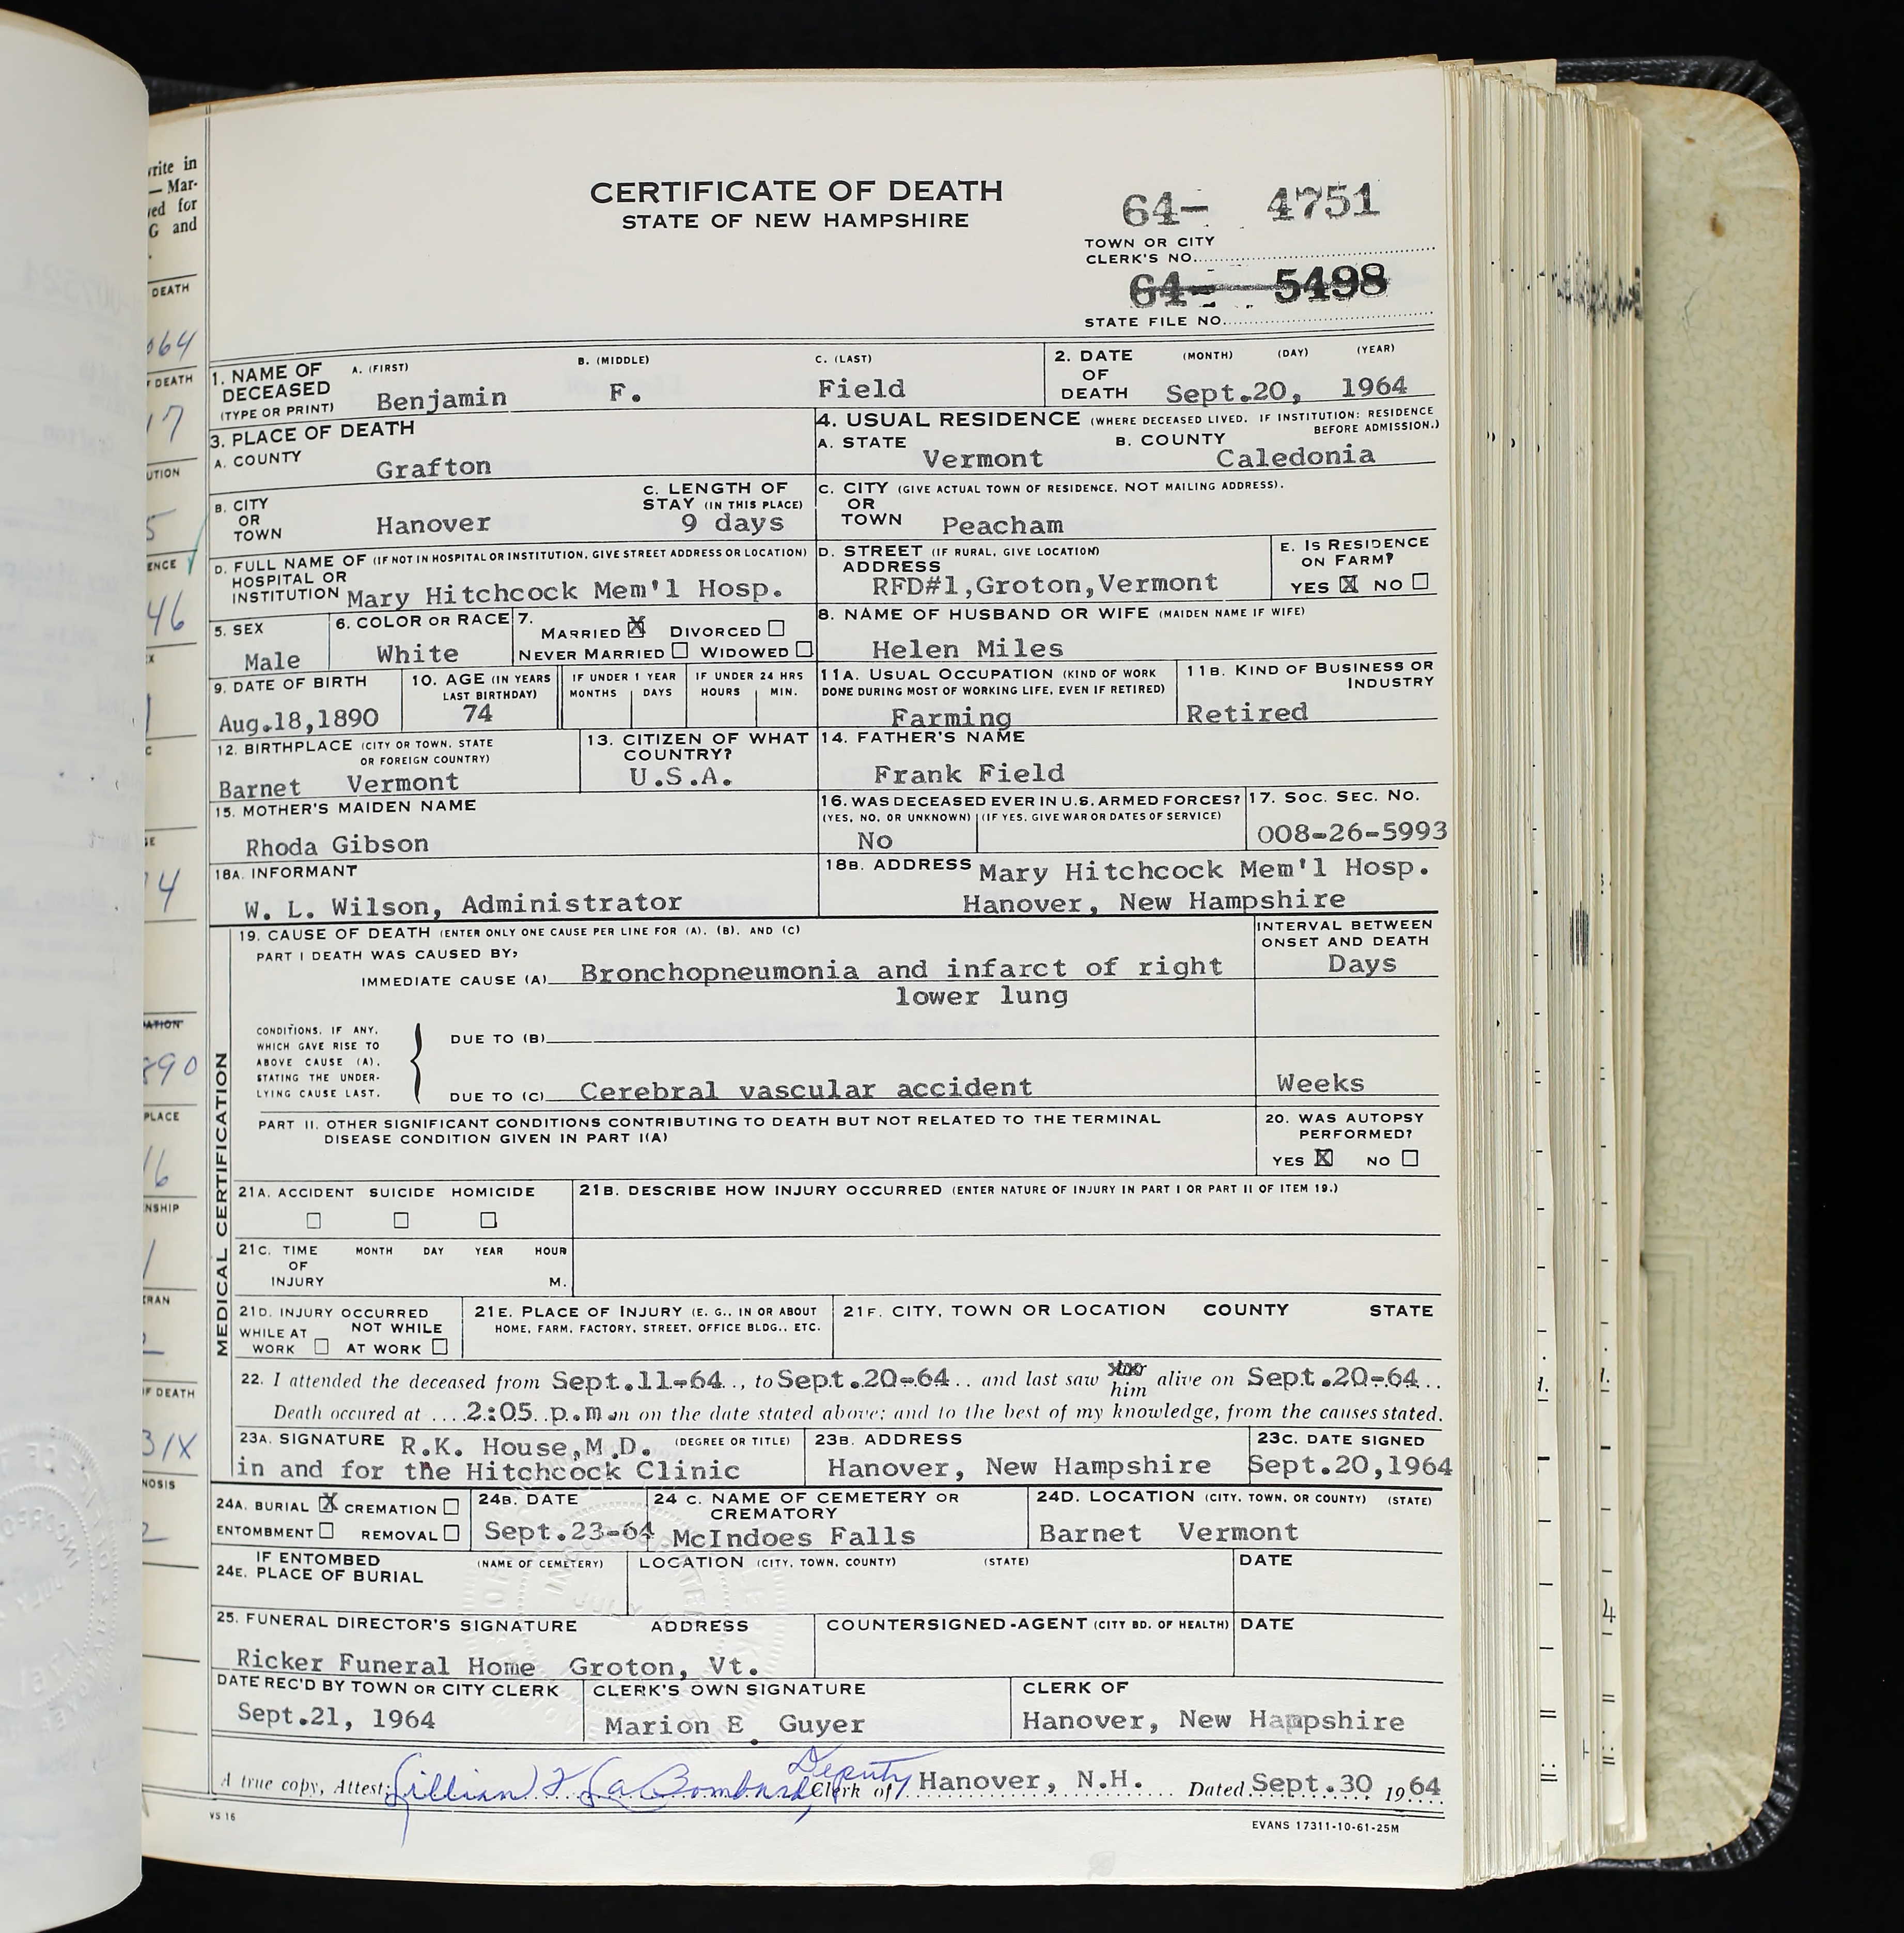 write in
— Mar-
ved for
G and
DEATH
64
F DEATH
17
UTION
5
ENCE
46
X
1
C
SE
14
ATION
890
PLACE
16
NSHIP
1
ERAN
2
F DEATH
31X
NOSIS
2
CERTIFICATE OF DEATH
STATE OF NEW HAMPSHIRE
64- 4751
TOWN OR CITY
CLERK'S NO.
64- 5498
STATE FILE NO.
1. NAME OF DECEASED (TYPE OR PRINT) A. (FIRST) B. (MIDDLE) C. (LAST)
Benjamin F. Field
2. DATE OF DEATH (MONTH) (DAY) (YEAR)
Sept.20, 1964
3. PLACE OF DEATH
A. COUNTY
Grafton
4. USUAL RESIDENCE (WHERE DECEASED LIVED. IF INSTITUTION: RESIDENCE BEFORE ADMISSION.)
A. STATE B. COUNTY
Vermont Caledonia
B. CITY OR TOWN
Hanover
C. LENGTH OF STAY (IN THIS PLACE)
9 days
C. CITY (GIVE ACTUAL TOWN OF RESIDENCE, NOT MAILING ADDRESS).
OR TOWN Peacham
D. FULL NAME OF (IF NOT IN HOSPITAL OR INSTITUTION, GIVE STREET ADDRESS OR LOCATION)
HOSPITAL OR
INSTITUTION Mary Hitchcock Mem'l Hosp.
D. STREET (IF RURAL, GIVE LOCATION)
ADDRESS
RFD#1,Groton,Vermont
E. IS RESIDENCE
ON FARM?
YES X NO
5. SEX
Male
6. COLOR OR RACE
White
7.
MARRIED X DIVORCED
NEVER MARRIED WIDOWED
8. NAME OF HUSBAND OR WIFE (MAIDEN NAME IF WIFE)
Helen Miles
9. DATE OF BIRTH
Aug.18,1890
10. AGE (IN YEARS
LAST BIRTHDAY)
74
IF UNDER 1 YEAR
MONTHS DAYS
IF UNDER 24 HRS
HOURS MIN.
11A. USUAL OCCUPATION (KIND OF WORK
DONE DURING MOST OF WORKING LIFE, EVEN IF RETIRED)
Farming
11B. KIND OF BUSINESS OR
INDUSTRY
Retired
12. BIRTHPLACE (CITY OR TOWN, STATE
OR FOREIGN COUNTRY)
Barnet Vermont
13. CITIZEN OF WHAT
COUNTRY?
U.S.A.
14. FATHER'S NAME
Frank Field
15. MOTHER'S MAIDEN NAME
Rhoda Gibson
16. WAS DECEASED EVER IN U.S. ARMED FORCES?
(YES, NO, OR UNKNOWN) (IF YES, GIVE WAR OR DATES OF SERVICE)
No
17. SOC. SEC. NO.
008-26-5993
18A. INFORMANT
W. L. Wilson, Administrator
18B. ADDRESS Mary Hitchcock Mem'l Hosp.
Hanover, New Hampshire
MEDICAL CERTIFICATION
19. CAUSE OF DEATH (ENTER ONLY ONE CAUSE PER LINE FOR (A), (B), AND (C)
PART I DEATH WAS CAUSED BY;
IMMEDIATE CAUSE (A) Bronchopneumonia and infarct of right
lower lung
INTERVAL BETWEEN
ONSET AND DEATH
Days
CONDITIONS, IF ANY,
WHICH GAVE RISE TO
ABOVE CAUSE (A),
STATING THE UNDER-
LYING CAUSE LAST.
DUE TO (B)
DUE TO (C) Cerebral vascular accident
Weeks
PART II. OTHER SIGNIFICANT CONDITIONS CONTRIBUTING TO DEATH BUT NOT RELATED TO THE TERMINAL
DISEASE CONDITION GIVEN IN PART I(A)
20. WAS AUTOPSY
PERFORMED?
YES X NO
21A. ACCIDENT SUICIDE HOMICIDE
21B. DESCRIBE HOW INJURY OCCURRED (ENTER NATURE OF INJURY IN PART I OR PART II OF ITEM 19.)
21C. TIME OF INJURY MONTH DAY YEAR HOUR
M.
21D. INJURY OCCURRED
WHILE AT WORK NOT WHILE AT WORK
21E. PLACE OF INJURY (E. G., IN OR ABOUT
HOME, FARM, FACTORY, STREET, OFFICE BLDG., ETC.
21F. CITY, TOWN OR LOCATION COUNTY STATE
22. I attended the deceased from Sept.11-64.., to Sept.20-64.. and last saw him alive on Sept.20-64..
Death occured at ....2:05..p.m on the date stated above; and to the best of my knowledge, from the causes stated.
23A. SIGNATURE R.K. House,M.D. (DEGREE OR TITLE)
in and for the Hitchcock Clinic
23B. ADDRESS
Hanover, New Hampshire
23C. DATE SIGNED
Sept.20,1964
24A. BURIAL X CREMATION
ENTOMBMENT REMOVAL
24B. DATE
Sept.23-64
24 C. NAME OF CEMETERY OR
CREMATORY
McIndoes Falls
24D. LOCATION (CITY, TOWN, OR COUNTY) (STATE)
Barnet Vermont
IF ENTOMBED
24E. PLACE OF BURIAL
(NAME OF CEMETERY)
LOCATION (CITY, TOWN, COUNTY) (STATE)
DATE
25. FUNERAL DIRECTOR'S SIGNATURE ADDRESS
Ricker Funeral Home Groton, Vt.
COUNTERSIGNED-AGENT (CITY BD. OF HEALTH)
DATE
DATE REC'D BY TOWN OR CITY CLERK
Sept.21, 1964
CLERK'S OWN SIGNATURE
Marion E. Guyer
CLERK OF
Hanover, New Hampshire
A true copy, Attest: Lillian F. LaBombard, Deputy Clerk of Hanover, N.H. Dated Sept.30 1964
VS 16
EVANS 17311-10-61-25M